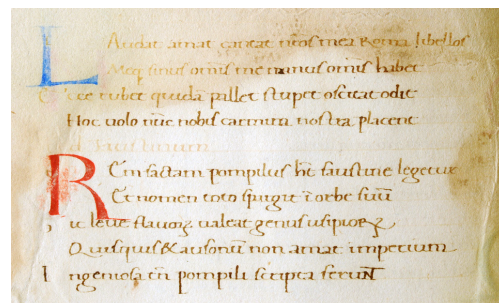 LAudat amat cantat nr̄os mea Roma libellos
Meq; sinus omnis me manus omnis habet
Ecce rubet quidā pallet stupet oscitat odit
Hoc uolo nūc nobis carmina nostra placent
REm factam pompilus ht̄ faustine legetur
Et nomen toto spargit ī orbe suū
ic leue flauoꝝ ualeat genus usipioꝝ
Quisquis & ausoniū non amat imperium
Ingeniosa tn̄ pompili scripta ferunt